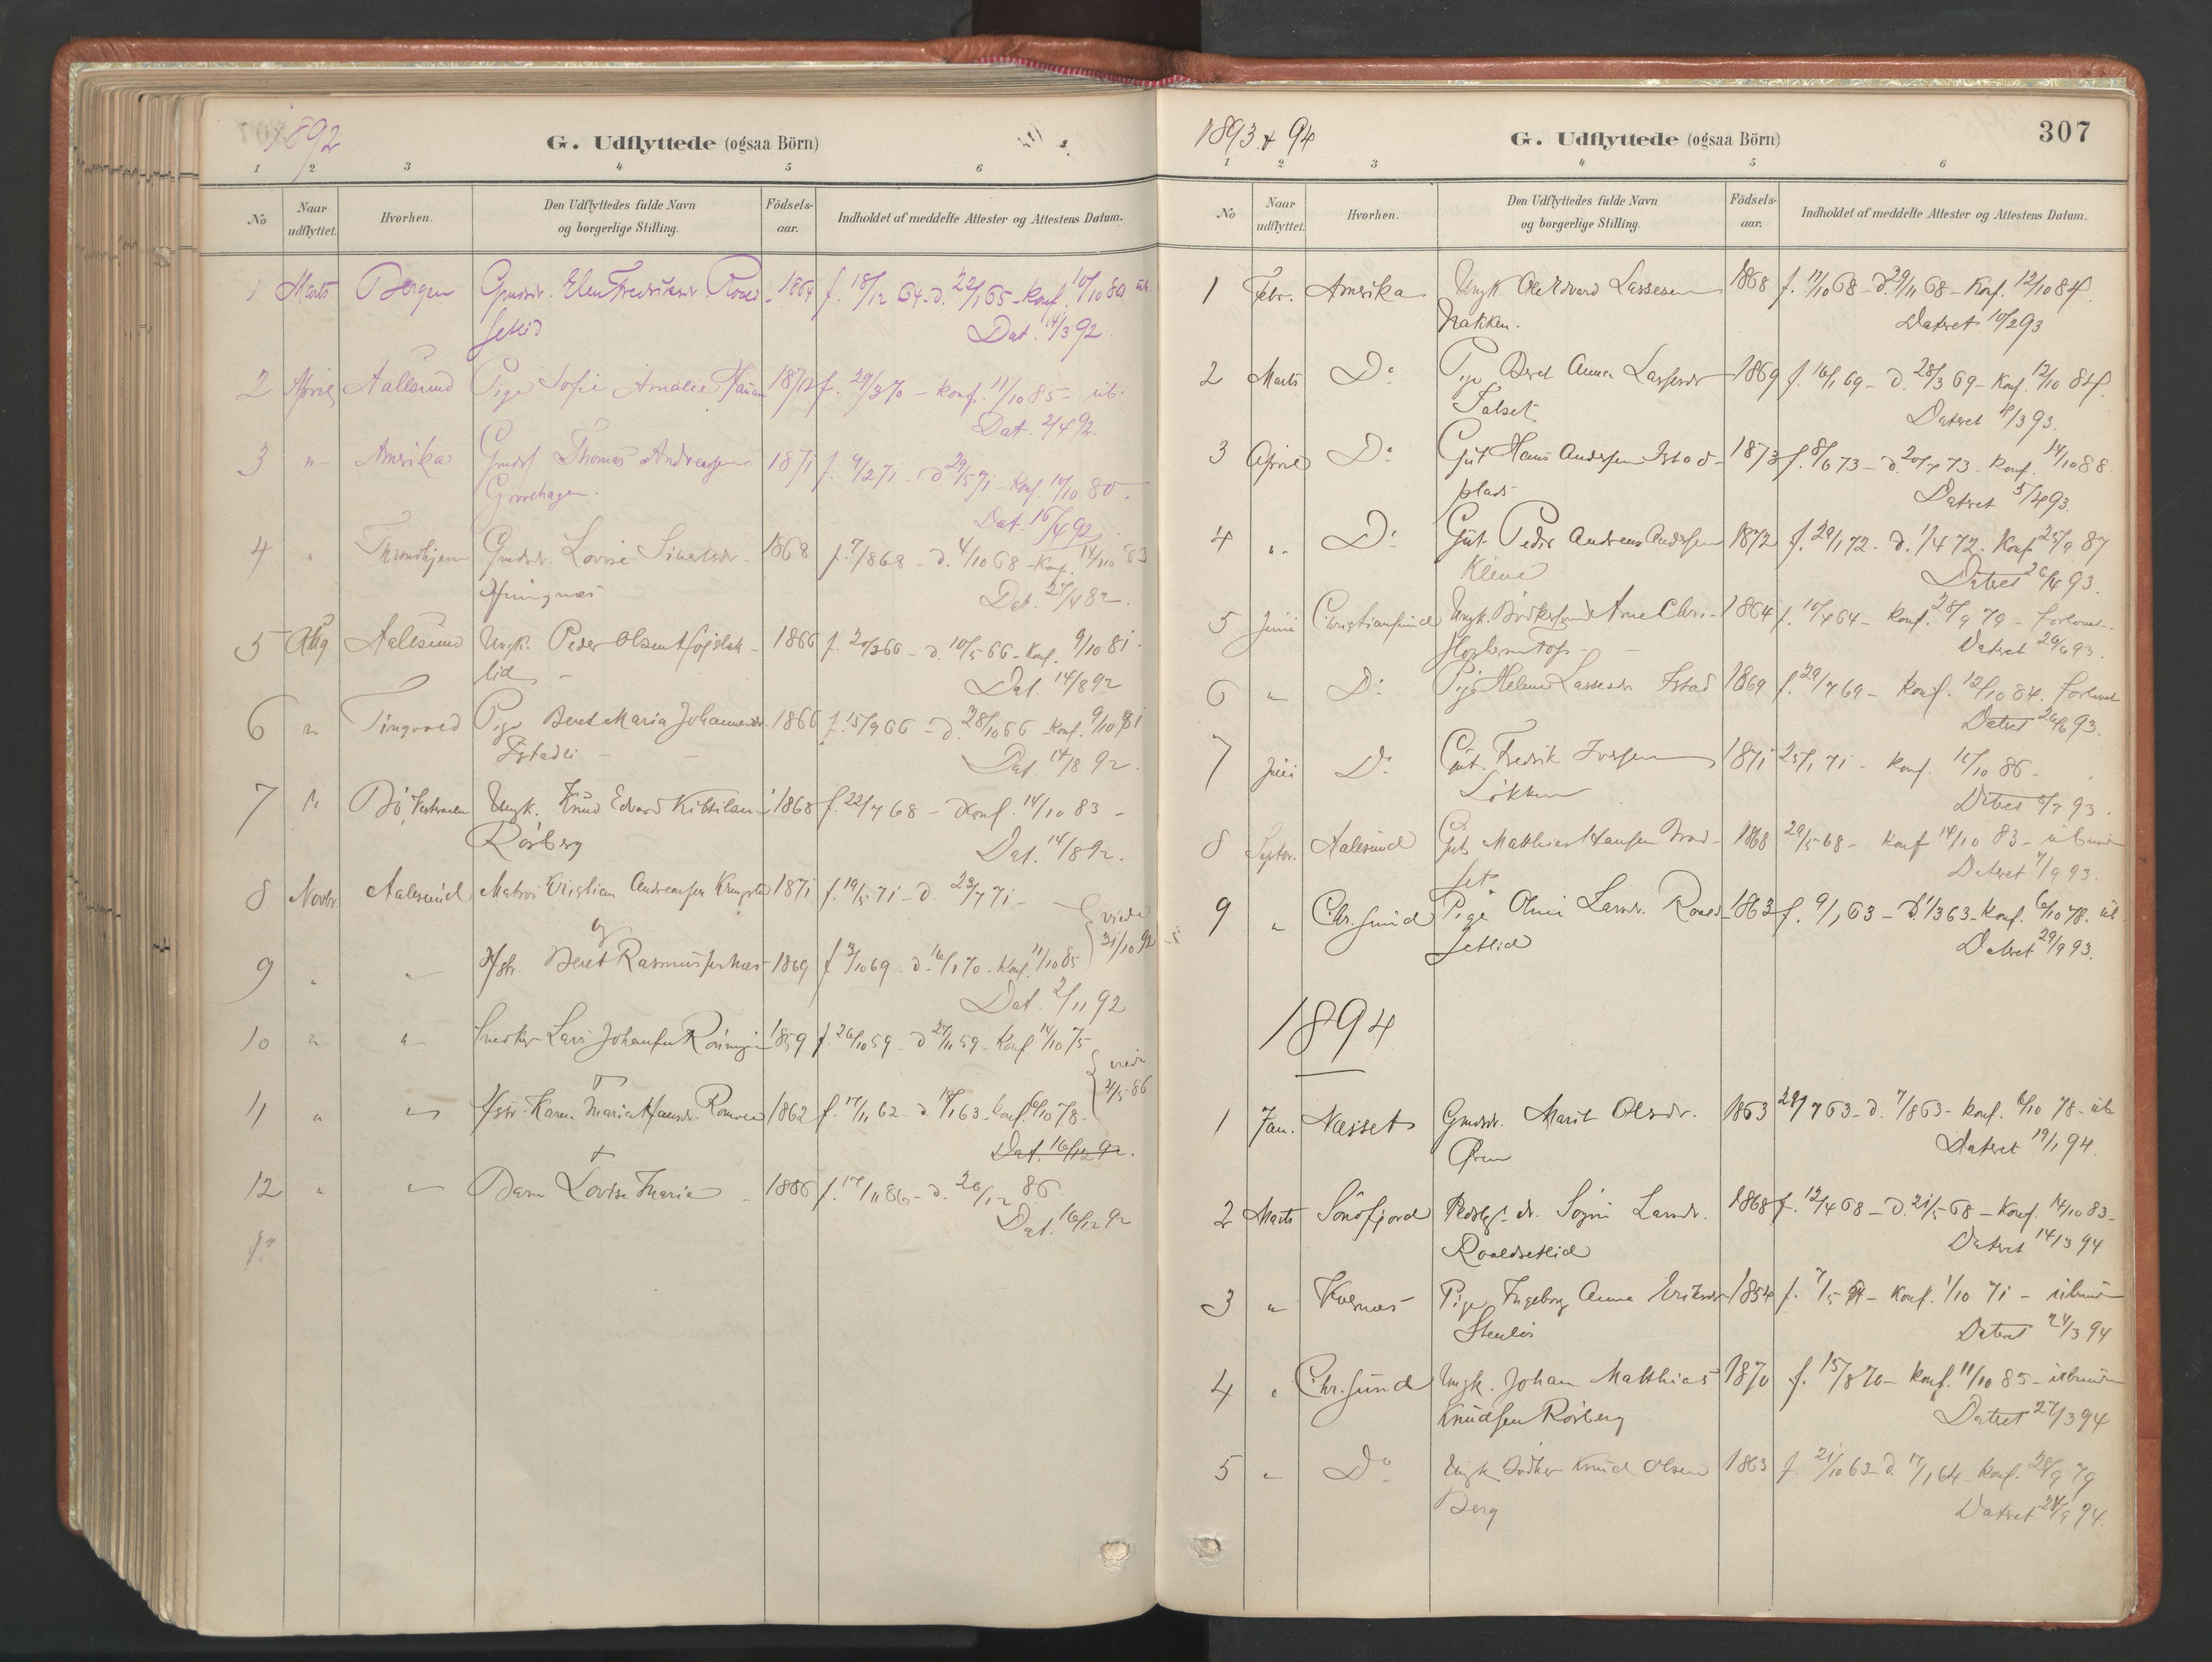 1892
G. Udflyttede (ogsaa Börn)
1 2 3 4 5 6
No
Naar udflyttet.
Hvorhen.
Den Udflyttedes fulde Navn og borgerlige Stilling.
Födsels-aar.
Indholdet af meddelte Attester og Attestens Datum.
1 Marts Bergen Gmdsdr. Elen Fredriksdr. Roald- 1864 f. 18/12 64 - d. 22/1 65 - Konf. 10/10 80
setlid Dat. 14/3 92.
2 April Aallesund Pige Sofie Amalie 1870 f. 29/3 70 - Konf. 11/10 85 - ub.
Dat. 2/4 92.
3 " Amerika Thomas Andreassen 1871 f. 9/2 71 - d. 29/5 71 - Konf. 10/10 80.
Dat. 16/4 92
4 " Throndhjem Gmdsdr. Lovise 1868 f. 7/8 68 - d. 4/10 68 - Konf. 14/10 83
Dat. 27/4 82.
5 Aug Aallesund Ungk. Peder Olsen 1866 f. 20/3 66 - d. 10/5 66 - Konf. 9/10 81.
lid - Dat. 14/8 92
6 " Tingvold Pige Beret Maria Johannesdr. 1866 f. 15/9 66 - d. 28/10 66 - Konf. 9/10 81
Istadli - Dat. 14/8 92.
7 " Bö, Vesteraalen Ungk. Knud Edvard Kittilsen 1868 f. 22/7 68 - Konf. 14/10 83 -
Rörberg Dat. 14/8 92.
8 Novbr. Aalesund Matros Kristian Andreassen 1871 f. 19/5 71 - d. 23/7 71 -
og viede 31/10 92
9 " " Hstr. Beret Rasmusdr. 1869 f. 3/10 69 - d. 16/1 70 - Konf. 11/10 85
Dat. 2/11 92
10 " " Snedker Lars Johansen 1859 f. 26/10 59 - d. 27/11 59 - Konf. 14/10 75
viede 2/5 86
11 " " Hstr. Karen Maria Hansdr. 1862 f. 17/11 62 - d. 18/1 63 - Konf. 6/10 78.
Dat. 16/12 92.
12 " " Barn Lovise Marie - 1886 f. 17/11 86 - d. 26/12 86
Dat. 16/12 92
1893 & 94
G. Udflyttede (ogsaa Börn)
307
1 2 3 4 5 6
No
Naar udflyttet.
Hvorhen.
Den Udflyttedes fulde Navn og borgerlige Stilling.
Födsels-aar.
Indholdet af meddelte Attester og Attestens Datum.
1 Febr. Amerika Ungk. Ole Edvard Lassesen 1868 f. 11/10 68 - d. 29/11 68 - Konf. 12/10 84.
Nakken. Dateret 10/2 93
2 Marts Do Pige Beret Anna Lassesdr 1869 f. 16/1 69 - d. 28/3 69 - Konf. 12/10 84.
Talset Dateret 4/3 93.
3 April Do Gut Hans Anderssen Istad- 1873 f. 8/6 73 - d. 20/7 73 - Konf. 14/10 88
plads Dateret 5/4 93.
4 " Do Gut Peder Andreas Anderssen 1872 f. 29/1 72 - d. 1/4 72 - Konf. 25/9 87
Kleive Dateret 26/4 93.
5 Juni Christiansund Ungk. Arne Chri- 1864 f. 16/4 64 - Konf. 28/9 79 - forlovet -
Dateret 26/6 93.
6 " Do Pige Helene Lassesdr Istad 1869 f. 29/7 69 - Konf. 12/10 84. forlovet
Dateret 26/6 93.
7 Juli Do Gut Fredrik Iversen 1871 25/1 71 - Konf. 10/10 86 -
Lökken Dateret 6/7 93.
8 Septbr. Aalesund Gut Matthias Hansen 1868 29/5 68 - Konf 14/10 83 - ubunden
set. Dateret 7/9 93.
9 " Chr.sund Pige Olini Larsdr. Roald- 1863 f. 9/1 63 - d. 1/3 63 - Konf. 6/10 78. ub
setlid Dateret 29/9 93.
1894
1 Jan. Næsset Gmdsdr. Marit Olsdr. 1863 29/7 63 - d. 7/8 63 - Konf. 6/10 78 - ub
Øren Dateret 19/1 94.
2 Marts Söndfjord Sögni Larsdr. 1868 f. 12/4 68 - d. 21/5 68 - Konf. 14/10 83 -
Roaldsetlid Dateret 14/3 94
3 " Kvernæs Pige Ingeborg Anna Eriksdr 1854 f. 7/5 54 - Konf. 1/10 71 - ubunden
Stenlös Dateret 24/3 94
4 " Chr.sund Ungk. Johan Matthias 1870 f. 15/8 70 - Konf. 11/10 85 - ubunden
Knudsen Rörberg Dateret 27/3 94
5 " Do Ungk. Bödker Knud Olsen 1863 f. 21/10 63 - d. 17/1 64 - Konf. 28/9 79
Berg Dateret 28/9 94.